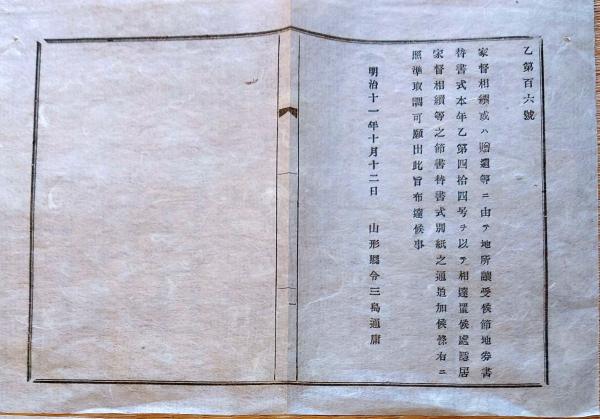 乙第百六號
家督相續或ハ贈遺等ニ由テ地所讓受候節地券書
替書式本年乙第四拾四号ヲ以テ相達置候處隱居
家督相續等之節書替書式別紙之通追加候條右ニ
照準取調可願出此旨布達候事
明治十一年十月十二日
山形縣令三島通庸